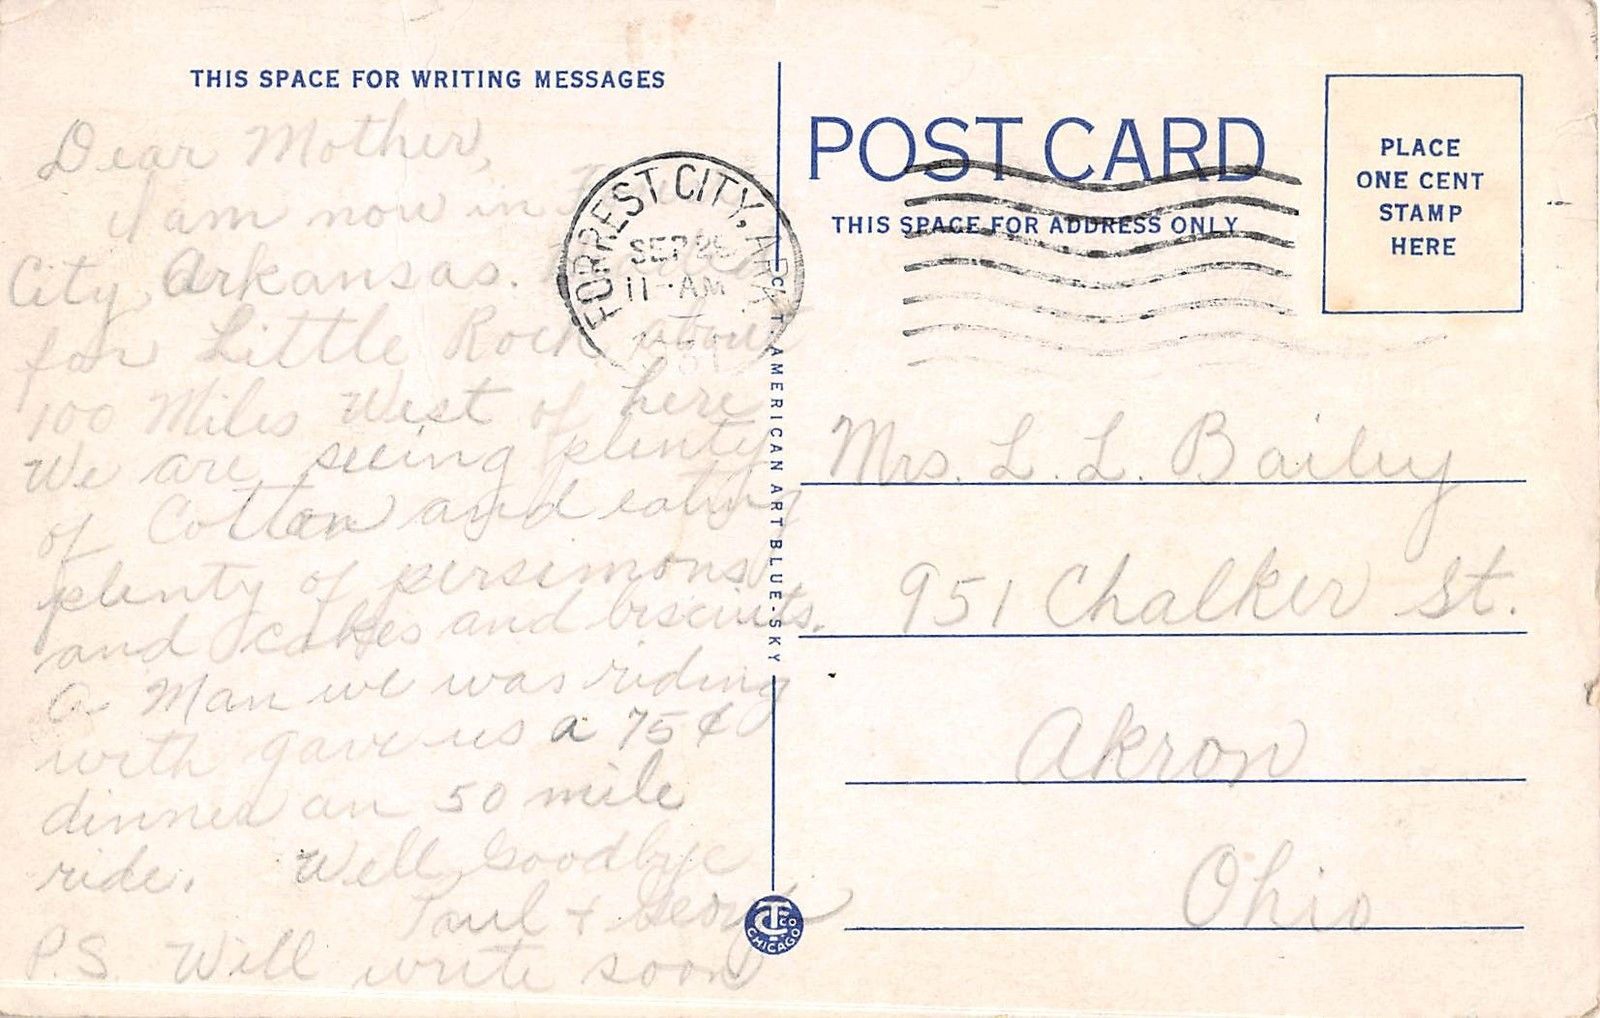 THIS SPACE FOR WRITING MESSAGES
Dear Mother,
I am now in
City, Arkansas.
for Little Rock about
100 Miles West of here
We are seeing plenty
of Cotton and eating
plenty of persimons
and cakes and biscuits.
A Man we was riding
with gave us a 75¢
dinner an 50 mile
ride. Well Goodbye
Paul + George
P.S. Will write soon
FORREST CITY, ARK.
SEP
11 - AM
C. T. AMERICAN ART BLUE-SKY
CT CO
CHICAGO
POST CARD
THIS SPACE FOR ADDRESS ONLY
PLACE
ONE CENT
STAMP
HERE
Mrs. L. L. Bailey
951 Chalker St.
Akron
Ohio